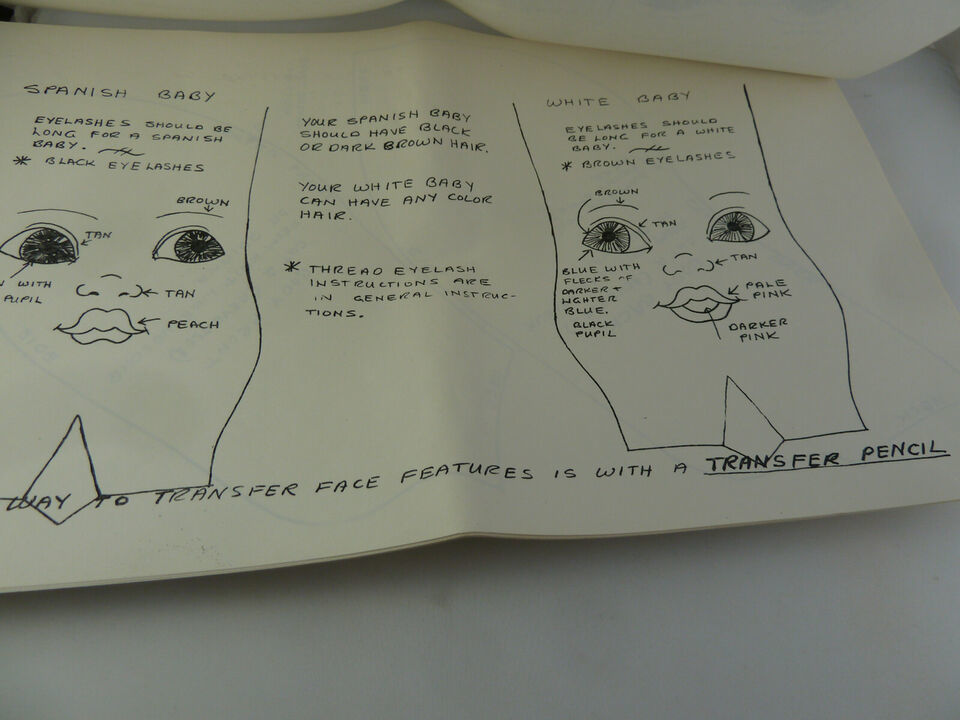 SPANISH BABY
EYELASHES SHOULD BE
LONG FOR A SPANISH
BABY.
* BLACK EYELASHES
BROWN
TAN
WITH
PUPIL
TAN
PEACH
YOUR SPANISH BABY
SHOULD HAVE BLACK
OR DARK BROWN HAIR.
YOUR WHITE BABY
CAN HAVE ANY COLOR
HAIR.
* THREAD EYELASH
INSTRUCTIONS ARE
IN GENERAL INSTRUC-
TIONS.
WHITE BABY
EYELASHES SHOULD
BE LONG FOR A WHITE
BABY.
* BROWN EYELASHES
BROWN
TAN
BLUE WITH
FLECKS OF
DARKER +
LIGHTER
BLUE.
BLACK
PUPIL
TAN
PALE
PINK
DARKER
PINK
WAY TO TRANSFER FACE FEATURES IS WITH A TRANSFER PENCIL